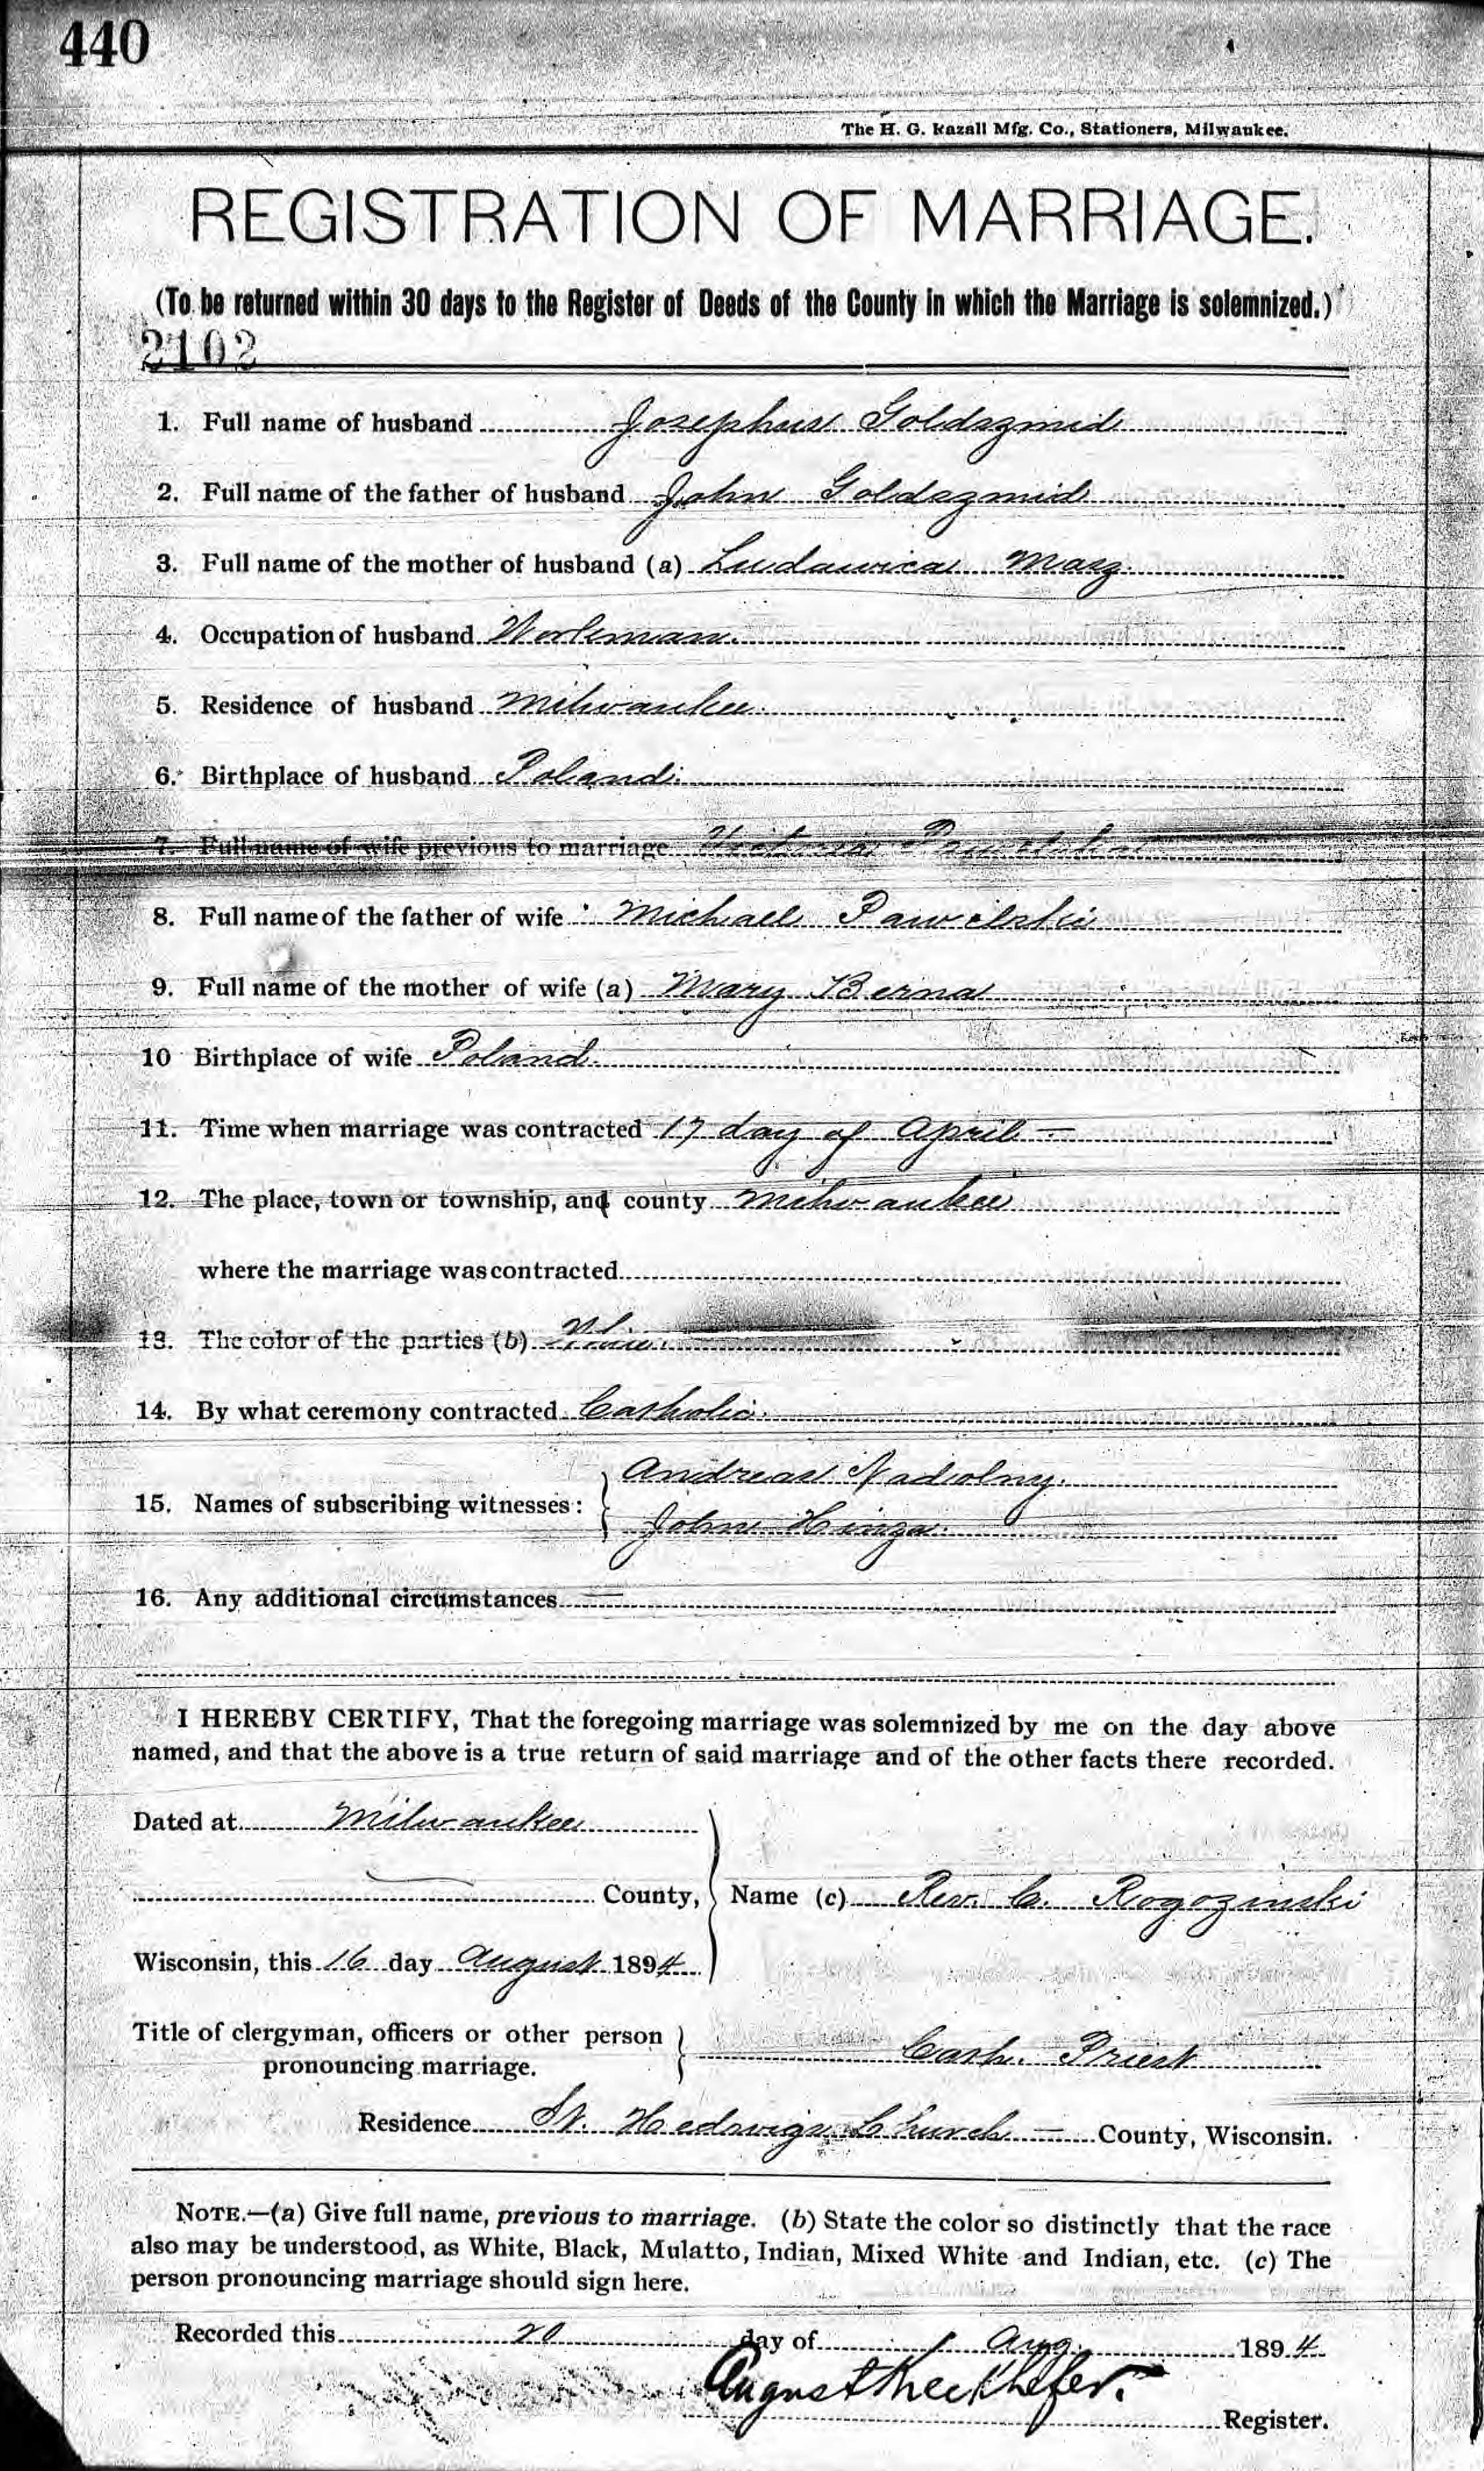 440
The H. G. Razall Mfg. Co., Stationers, Milwaukee.
REGISTRATION OF MARRIAGE.
(To be returned within 30 days to the Register of Deeds of the County in which the Marriage is solemnized.)
2102
1. Full name of husband Josephus Goldszmid
2. Full name of the father of husband John Goldszmid
3. Full name of the mother of husband (a) Ludawica
4. Occupation of husband Workman.
5. Residence of husband Milwaukee.
6. Birthplace of husband Poland.
7. Full name of wife previous to marriage
8. Full name of the father of wife Michael Pawelski
9. Full name of the mother of wife (a) Mary Berna
10 Birthplace of wife Poland.
11. Time when marriage was contracted 17 day of April —
12. The place, town or township, and county Milwaukee
where the marriage was contracted
13. The color of the parties (b)
14. By what ceremony contracted Catholic.
15. Names of subscribing witnesses: { Andreas Nadolny.
John Hinga.
16. Any additional circumstances —
I HEREBY CERTIFY, That the foregoing marriage was solemnized by me on the day above
named, and that the above is a true return of said marriage and of the other facts there recorded.
Dated at Milwaukee
— County, } Name (c) Rev. C. Rogozinski
Wisconsin, this 16 day August 1894
Title of clergyman, officers or other person } Cath. Priest
pronouncing marriage.
Residence St. Hedwigs Church — County, Wisconsin.
NOTE.—(a) Give full name, previous to marriage. (b) State the color so distinctly that the race
also may be understood, as White, Black, Mulatto, Indian, Mixed White and Indian, etc. (c) The
person pronouncing marriage should sign here.
Recorded this 20 day of Aug. 1894
August Reckhefer. Register.